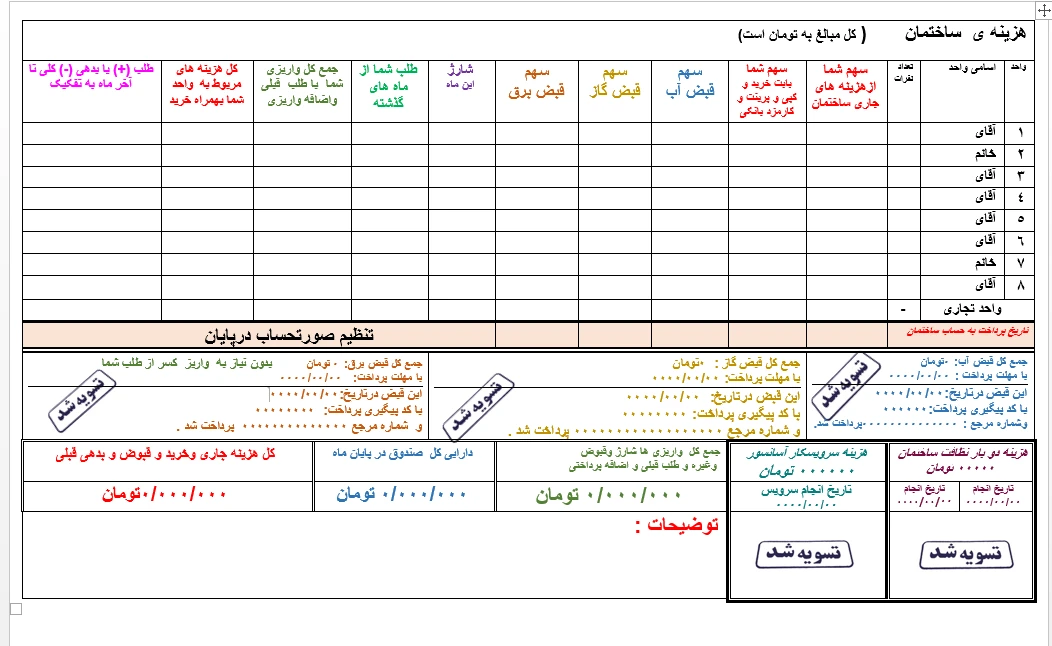 هزینه ی ساختمان ( کل مبالغ به تومان است)
واحد
اسامی واحد
تعداد
نفرات
سهم شما
ازهزینه های
جاری ساختمان
سهم شما
بابت خرید و
کپی و پرینت و
کارمزد بانکی
سهم
قبض آب
سهم
قبض گاز
سهم
قبض برق
شارژ
این ماه
طلب شما از
ماه های
گذشته
جمع کل واریزی
شما با طلب قبلی
واضافه واریزی
کل هزینه های
مربوط به واحد
شما بهمراه خرید
طلب (+) یا بدهی (-) کلی تا
آخر ماه به تفکیک
۱ آقای
۲ خانم
۳ آقای
٤ آقای
٥ آقای
٦ آقای
۷ خانم
۸ آقای
واحد تجاری -
تاریخ پرداخت به حساب ساختمان
تنظیم صورتحساب درپایان
جمع کل قبض آب: ۰تومان
با مهلت پرداخت : ۰۰۰۰/۰۰/۰۰
این قبض درتاریخ: ۰۰۰۰/۰۰/۰۰
با کد پیگیری پرداخت: ۰۰۰۰۰۰
وشماره مرجع : ۰۰۰۰۰۰۰۰۰۰۰۰۰۰پرداخت شد.
تسویه شد
جمع کل قبض گاز : ۰تومان
با مهلت پرداخت: ۰۰۰۰/۰۰/۰۰
این قبض درتاریخ: ۰۰۰۰/۰۰/۰۰
با کد پیگیری پرداخت: ۰۰۰۰۰۰۰۰
و شماره مرجع ۰۰۰۰۰۰۰۰۰۰۰۰۰۰۰۰۰۰ پرداخت شد .
تسویه شد
جمع کل قبض برق: ۰ تومان بدون نیاز به واریز کسر از طلب شما
با مهلت پرداخت: ۰۰۰۰/۰۰/۰۰
این قبض درتاریخ: ۰۰۰۰/۰۰/۰۰
با کد پیگیری پرداخت: ۰۰۰۰۰۰۰۰
و شماره مرجع ۰۰۰۰۰۰۰۰۰۰۰۰۰۰ پرداخت شد .
تسویه شد
هزینه دو بار نظافت ساختمان
۰۰۰۰۰ تومان
تاریخ انجام
۰۰۰۰/۰۰/۰۰
تاریخ انجام
۰۰۰۰/۰۰/۰۰
تسویه شد
هزینه سرویسکار آسانسور
۰۰۰۰۰۰ تومان
تاریخ انجام سرویس
۰۰۰۰/۰۰/۰۰
تسویه شد
جمع کل واریزی ها شارژ وقبوض
وغیره و طلب قبلی و اضافه پرداختی
۰/۰۰۰/۰۰۰ تومان
دارایی کل صندوق در پایان ماه
۰/۰۰۰/۰۰۰ تومان
کل هزینه جاری وخرید و قبوض و بدهی قبلی
۰/۰۰۰/۰۰۰تومان
توضیحات :